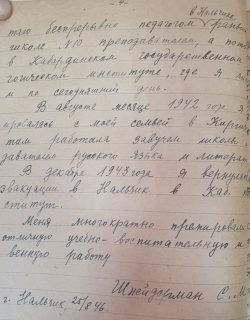 - 4 -
в Нальчике,
таю беспрерывно педагогом
школе №10 преподавателем, а пот
в Кабардинском государственном
гогическом институте, где я
и по сегодняшний день.
В августе месяце 1942 года,
ировалась с моей семьей в Кирги
там работала завучем школы
давателю русского языка и литера
В декабре 1943 года я вернула
эвакуации в Нальчик в Каб.
ституте.
Меня многократно премировали
отличную учебно-воспитательную и
венную работу
Шнейдерман С. М
г. Нальчик, 25/8 46.